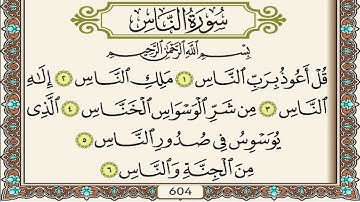 سُورَةُ النَّاسِ
بِسْمِ اللَّهِ الرَّحْمَٰنِ الرَّحِيمِ
قُلْ أَعُوذُ بِرَبِّ النَّاسِ ١ مَلِكِ النَّاسِ ٢ إِلَٰهِ
النَّاسِ ٣ مِن شَرِّ الْوَسْوَاسِ الْخَنَّاسِ ٤ الَّذِي
يُوَسْوِسُ فِي صُدُورِ النَّاسِ ٥
مِنَ الْجِنَّةِ وَالنَّاسِ ٦
604